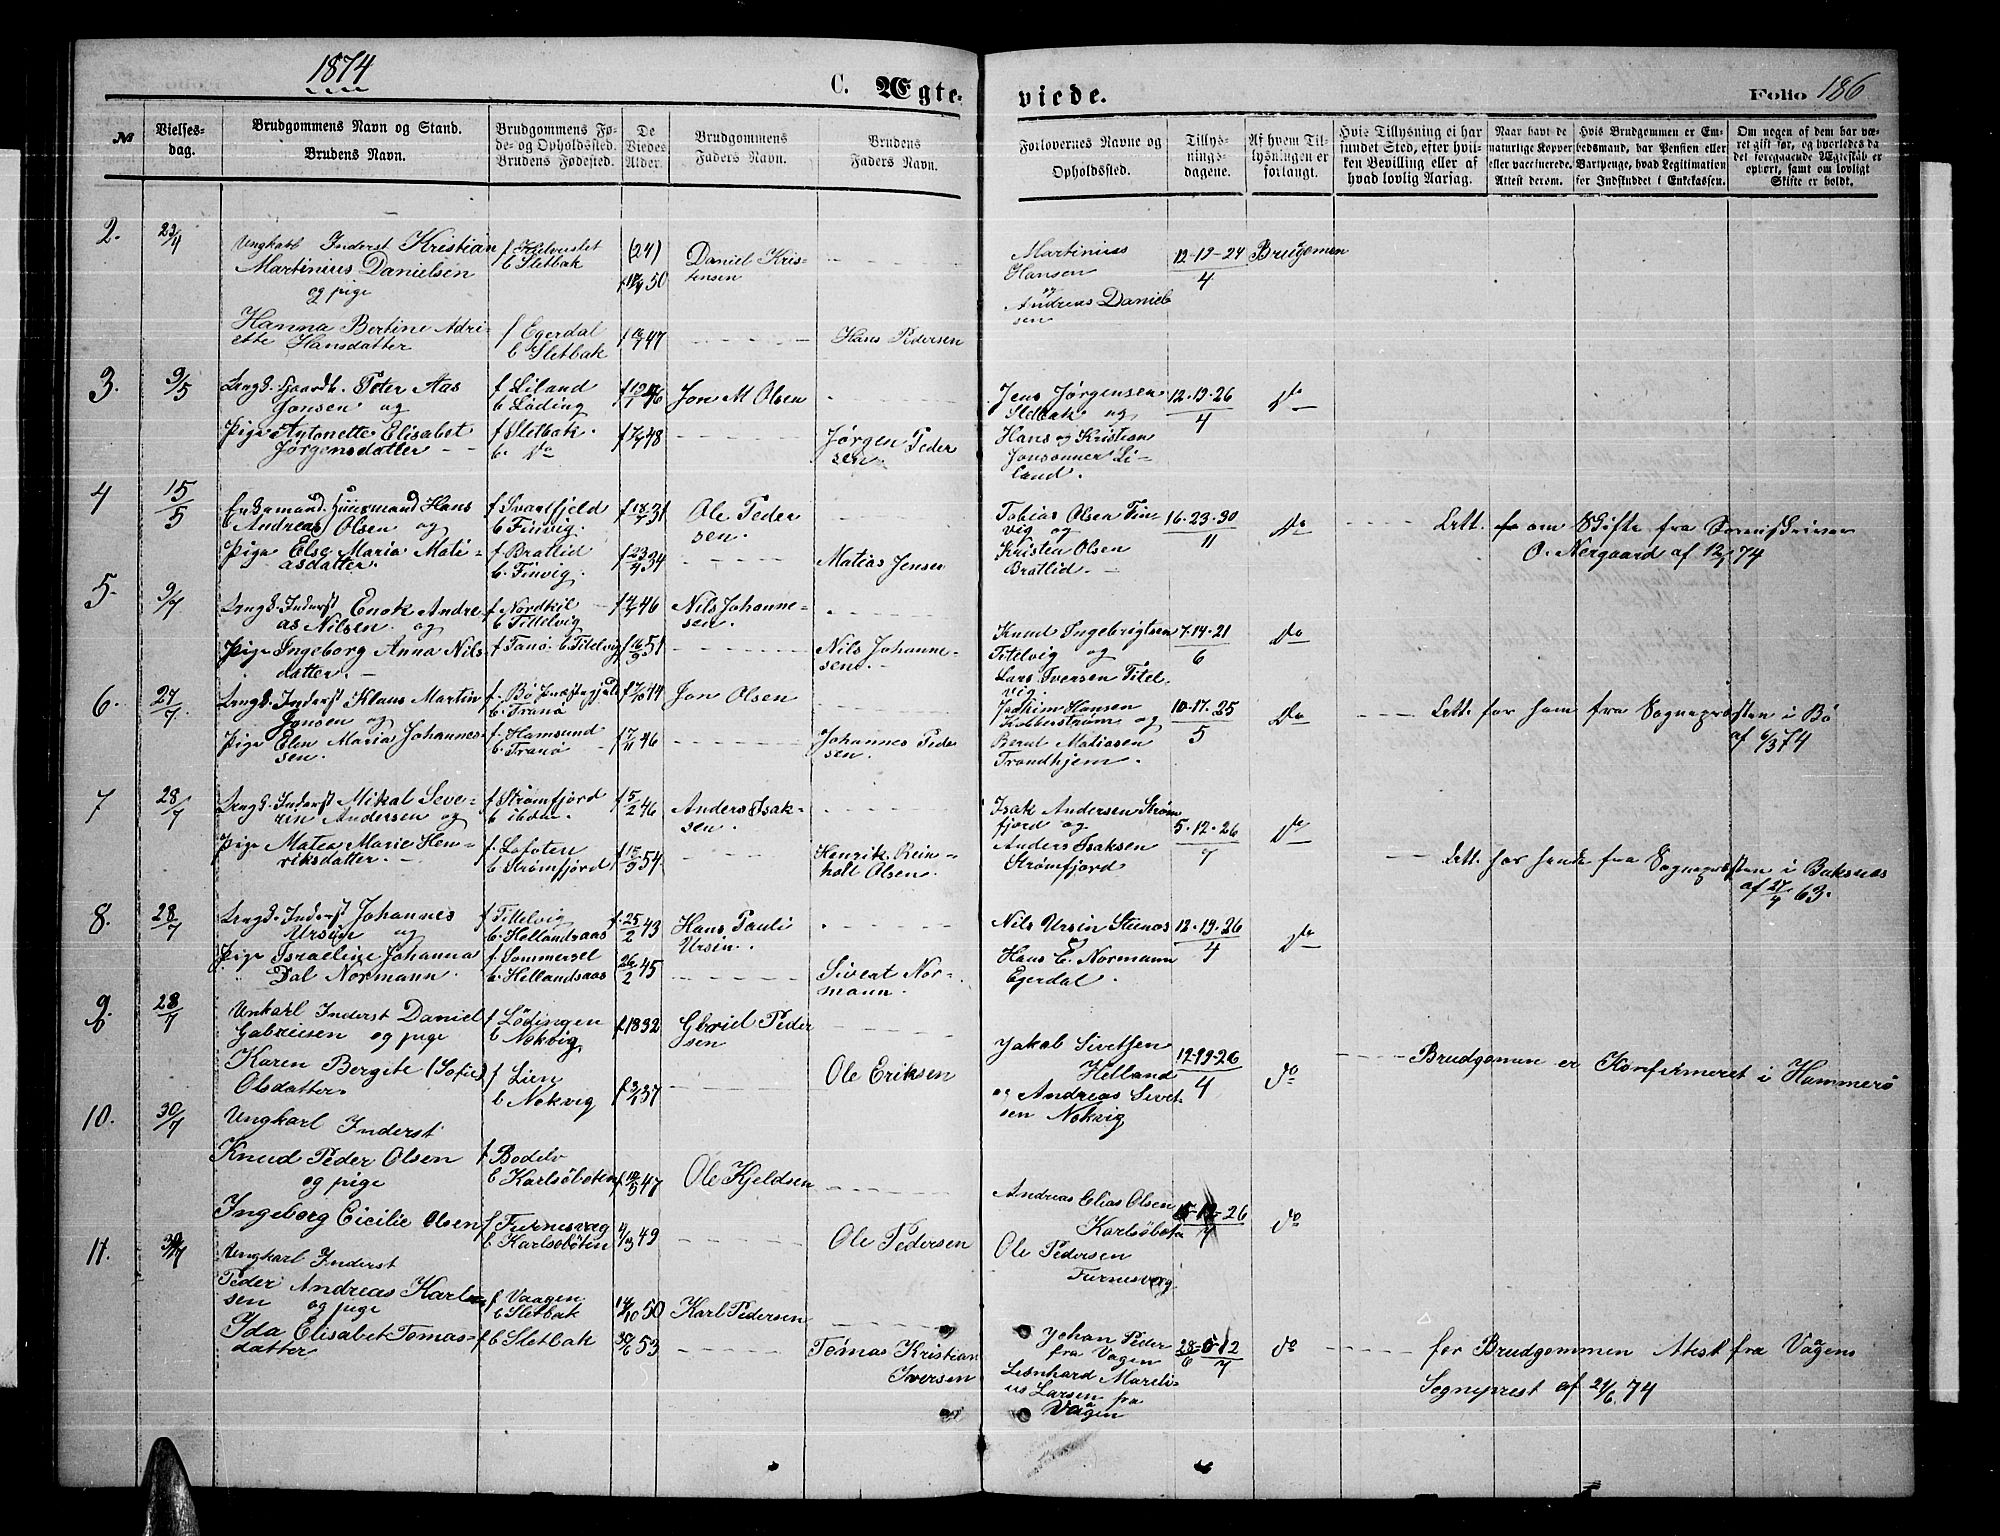 1874
C. Ægteviede.
Folio 186
№
Vielsesdag.
Brudgommens Navn og Stand.
Brudens Navn.
Brudgommens Føde- og Opholdssted.
Brudens Fødested.
De Viedes Alder.
Brudgommens Faders Navn.
Brudens Faders Navn.
Forlovernes Navne og Opholdssted.
Tillysningsdagene.
Af hvem Tillysningen er forlangt.
Hvis Tillysning ei har fundet Sted, efter hvilken Bevilling eller af hvad lovlig Aarsag.
Naar havt de naturlige Kopper eller vaccinerede. Attest derom.
Hvis Brudgommen er Embedsmand, har Pension eller Vartpenge, hvad Legitimation for Indskuddet i Enkekassen.
Om nogen af dem har været gift før, og hvorledes da det foregaaende Ægteskab er ophørt, samt om lovligt Skifte er holdt.
2. 23/4
Ungkarl Inderst Kristian
Martinius Danielsen
og pige
Hanna Bertine Adri-
ette Hansdatter
b Sletbak
(24)
50
Daniel Kris-
tensen
f Egerdal
b Sletbak
47
Hans Pedersen
Martinius
Hansen
og
Andreas Daniel-
sen
12-19-24
4
Brudgomen
3. 9/5
Ungk. Gaardb. Peter Aas
Jonsen og
Pige Antonette Elisabet
Jørgensdatter
f Liland
b Løding
46
Jon M Olsen
f Sletbak
b. Do
48
Jørgen Peder
sen
Jens Jørgensen
Sletbak og
Hans og Kristian
Jonsønner Li-
land.
12-19-26
4
Do
4 15/5
Enkemand Huusmand Hans
Andreas Olsen og
Pige Else Maria Mati-
asdatter
f Svartfjeld
b Finvig
31
Ole Peder
sen.
f Bratlid
b. Finvig.
23/4 34
Matias Jensen
Tobias Olsen Fin-
vig og
Kristen Olsen
Bratlid.
16-23-30
11
Do
Att. om Skifte fra Sorenskriver
O. Nergaard af 74
5. 9/7
Ungk. Inderst Enok Andre
as Nilsen og
Pige Ingeborg Anna Nils-
datter.
f Nordkil
b Tittelvig
46
Nils Johanne-
sen.
f Tanø b Titelvig
51
Nils Johanne-
sen.
Knud Ingebrigtsen
Titelvig og
Lars Iversen Titel
vig.
7-14-21
6
Do
6. 27/7.
Ungk. Inderst Klaus Martin
Jonsen og
Pige Elen Maria Johannes-
sen.
f. Bø Præstegjeld
b. Tranø
44
Jon Olsen
f. Hamsund
b. Tranø
46
Johannes Pede
sen.
Joakim Hansen
og
Bernt Matiasen
Trondhjem.
10-17-25
5
Do
Att. for ham fra Sognepræsten i Bø
af 6/3 74
7 28/7
Ungk. Inderst Mikal Seve-
rin Andersen og
Pige Matea Marie Hen-
riksdatter.
f Strømfjord
b ibdm.
5/2 46
Anders Isak-
sen.
f. Lofoten
b Strømfjord
15/9 54
Henrik Rein-
holt Olsen.
Isak Andersen Strøm
fjord og
Anders Isaksen
Strømfjord
5-12-26
7
Do
Att. for hende fra Sognepræsten i Buksnæs
af 27/4 63.
8. 28/7
Ungk. Inderst Johannes
Ursin og
Pige Israeline Johanna
Dal Normann.
f Tittelvig
b. Hellandsaas
f. 25/2 43
Hans Pauli
Ursin.
f. Sommersel
b. Hellandsaas
26/2 45
Sivert Nor-
mann.
Nils Ursin Stenas
og
Hans C. Normann
Egerdal.
12-19-26
4
Do
9. 28/7
Unkarl Inderst Daniel
Gabrielsen og pige
Karen Bergite (Sofie)
Olsdatter.
f Lødingen
b Nokvig
f. 1832
Gbriel Peder
sen
f Lien
b Nokvig
37
Ole Eriksen
Jakob Sivetsen
Helland
og Andreas Sivet-
sen Nokvig
12-19-26
4
do
Brudgomen er Konfirmeret i Hammerø
10. 30/7
Ungkarl Inderst
Knud Peder Olsen
og pige
Ingeborg Cicilie Olsen
f Bodelv
b Karlsøboten
47
Ole Kjeldsen
f Furnesvæg
b Karlsebøten
49
Ole Pedersen
Andreas Elias Olsen
Karlsøboten
Ole Pedersen
Furnesveg
5-12-26
7
do
11.
Ungkarl Inderst
Peder Andreas Karl-
sen og pige
Ida Elisabet Tomas-
datter
f Vaagen
b Sletbak
14/10 50
Karl Pedersen
f b Sletbak
30/6 53
Tomas Kristian
Iversen
Johan Peder
fra Vagen
Lienhard Mareli-
us Larsen fra
Vågen
28-5-12
6 7
do
for Brudgommen Atest fra Vågens
Sogneprest af 21/6. 74